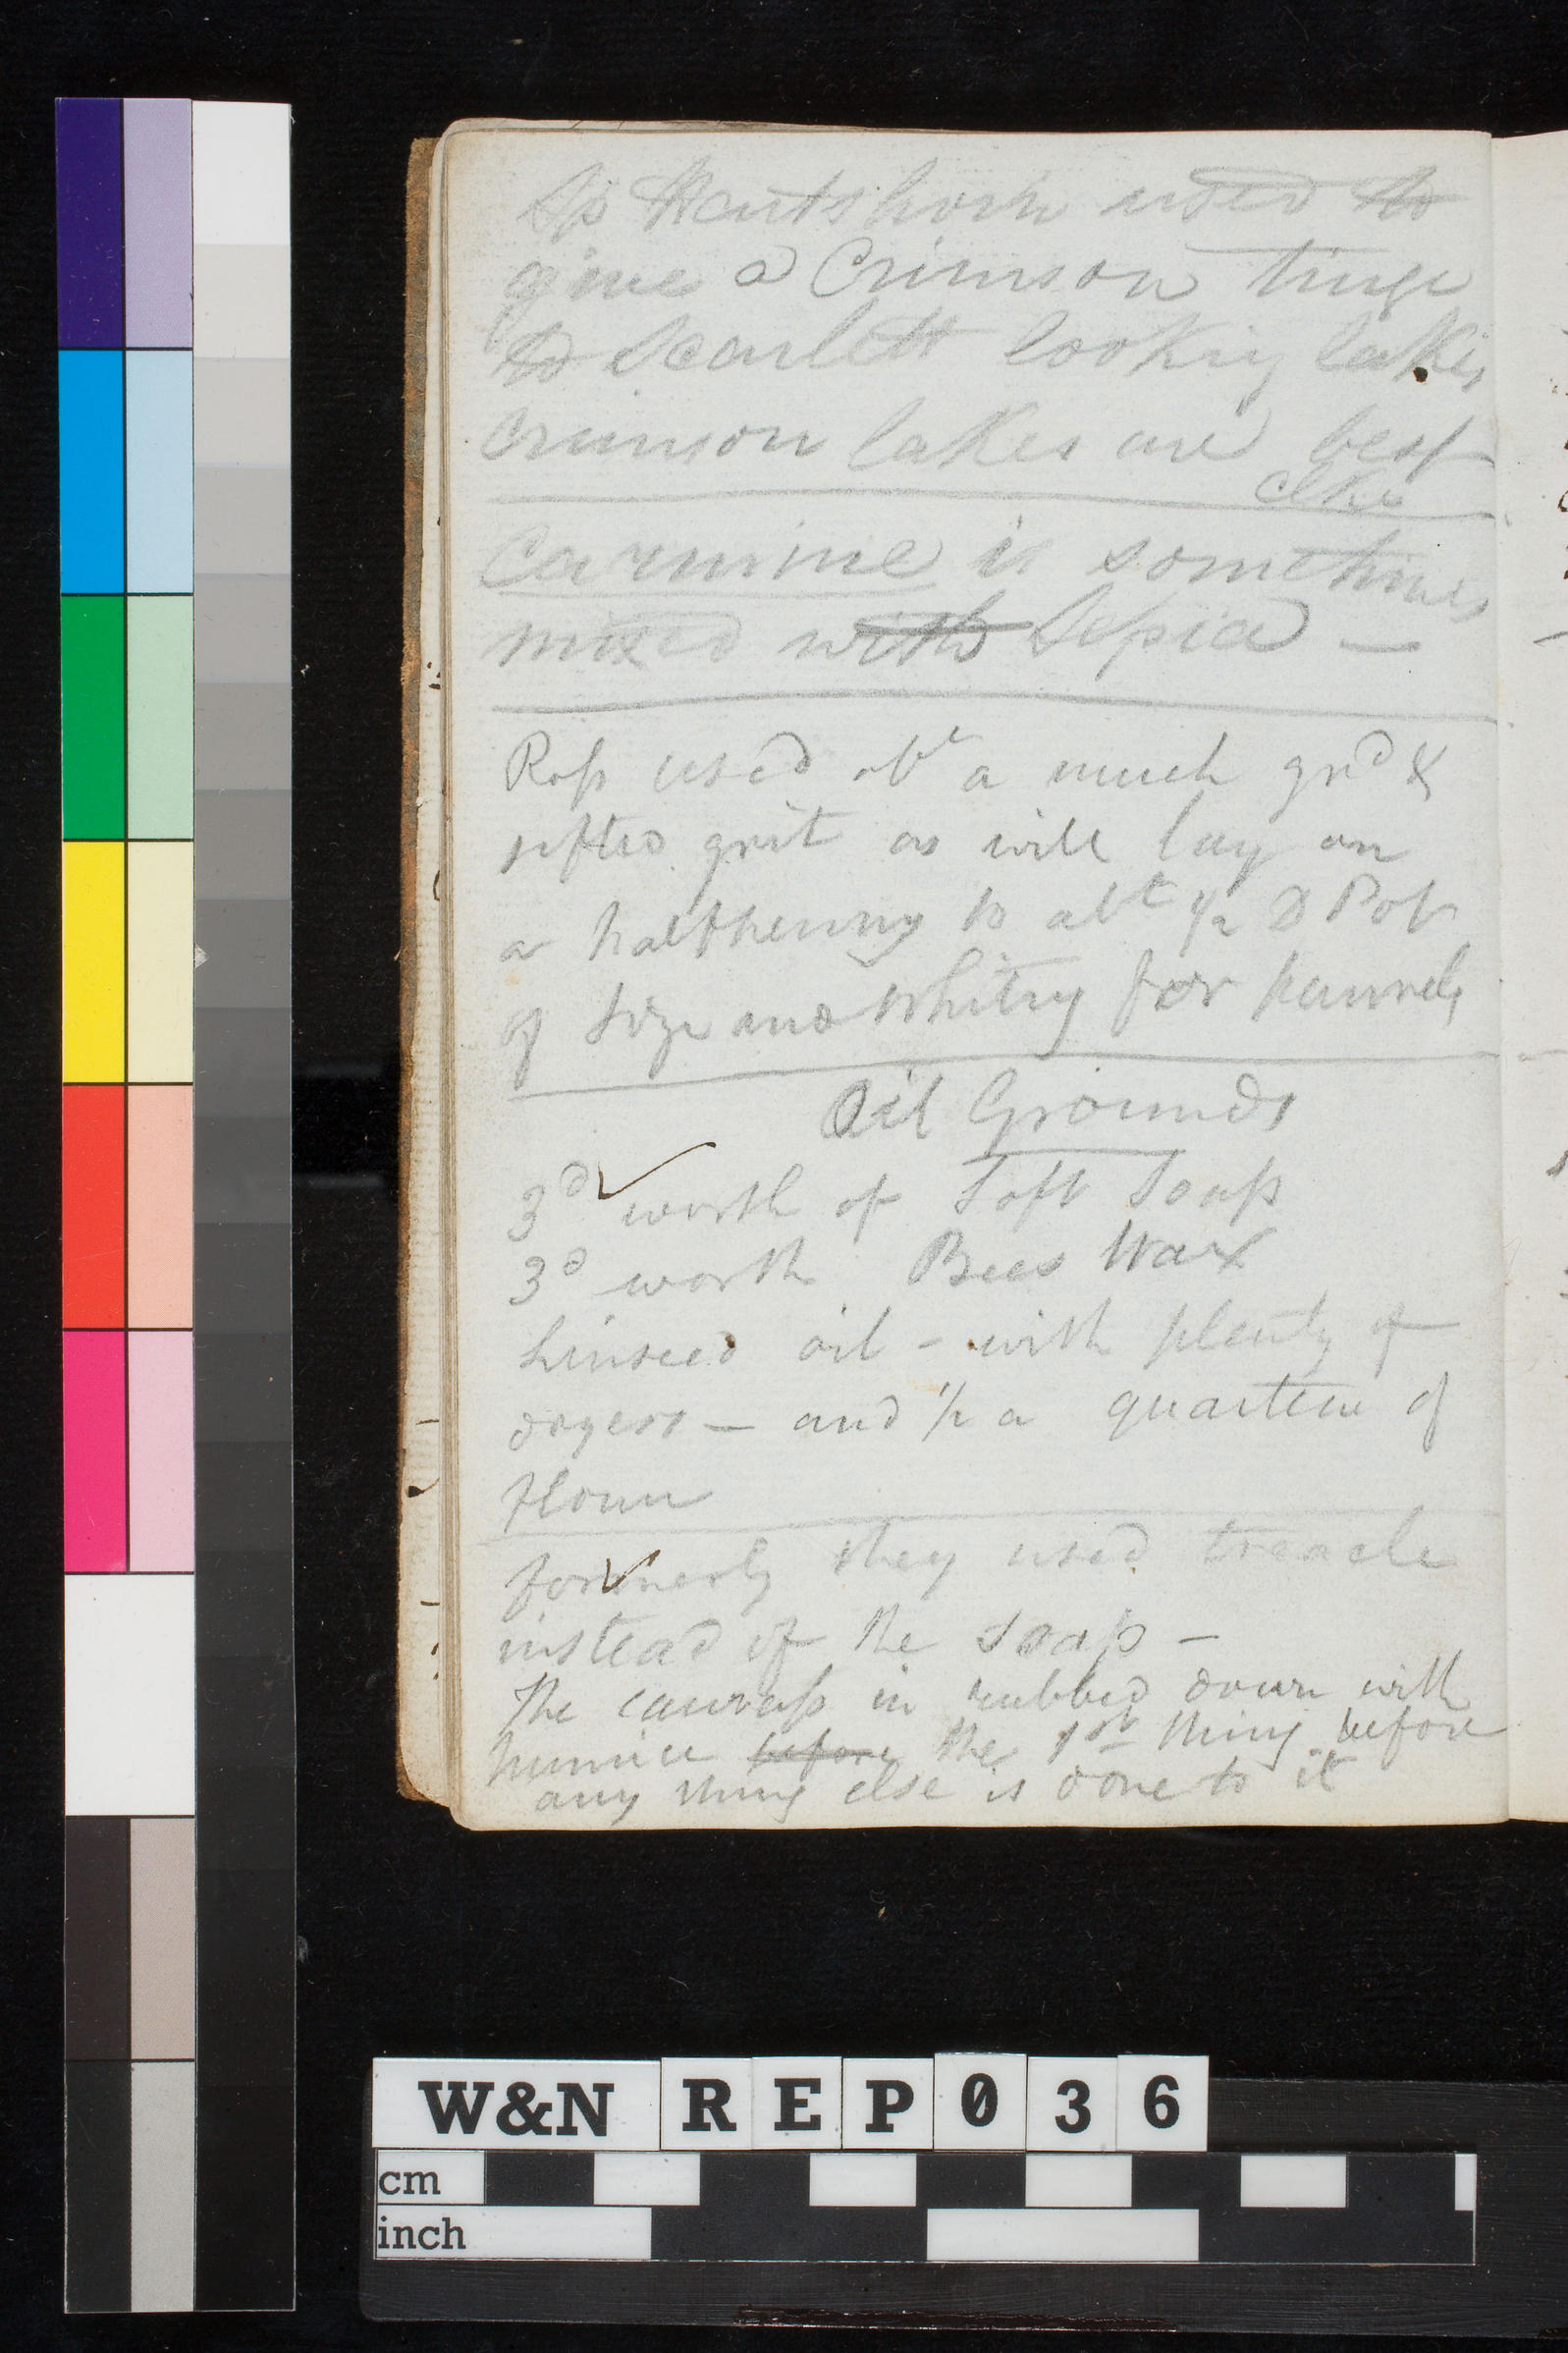 Sp Hartshorn used to
give a Crimson tinge
to Scarlett looking lakes
Crimson lakes are best
Carmine is sometimes
mixed with Sepia —
Ross used abt a much grd &
sifted grit as will lay on
a halfpenny to abt 1/2 a Pot
of Size and Whiting for pannels
Oil Grounds
3d worth of Soft Soap
3d worth Bees Wax
Linseed oil - with plenty of
dryers — and 1/2 a quartern of
flour
formerly they used treacle
instead of the soap -
The canvass is rubbed down with
pumice before the 1st thing before
any thing else is done to it
W&N REP036
cm
inch